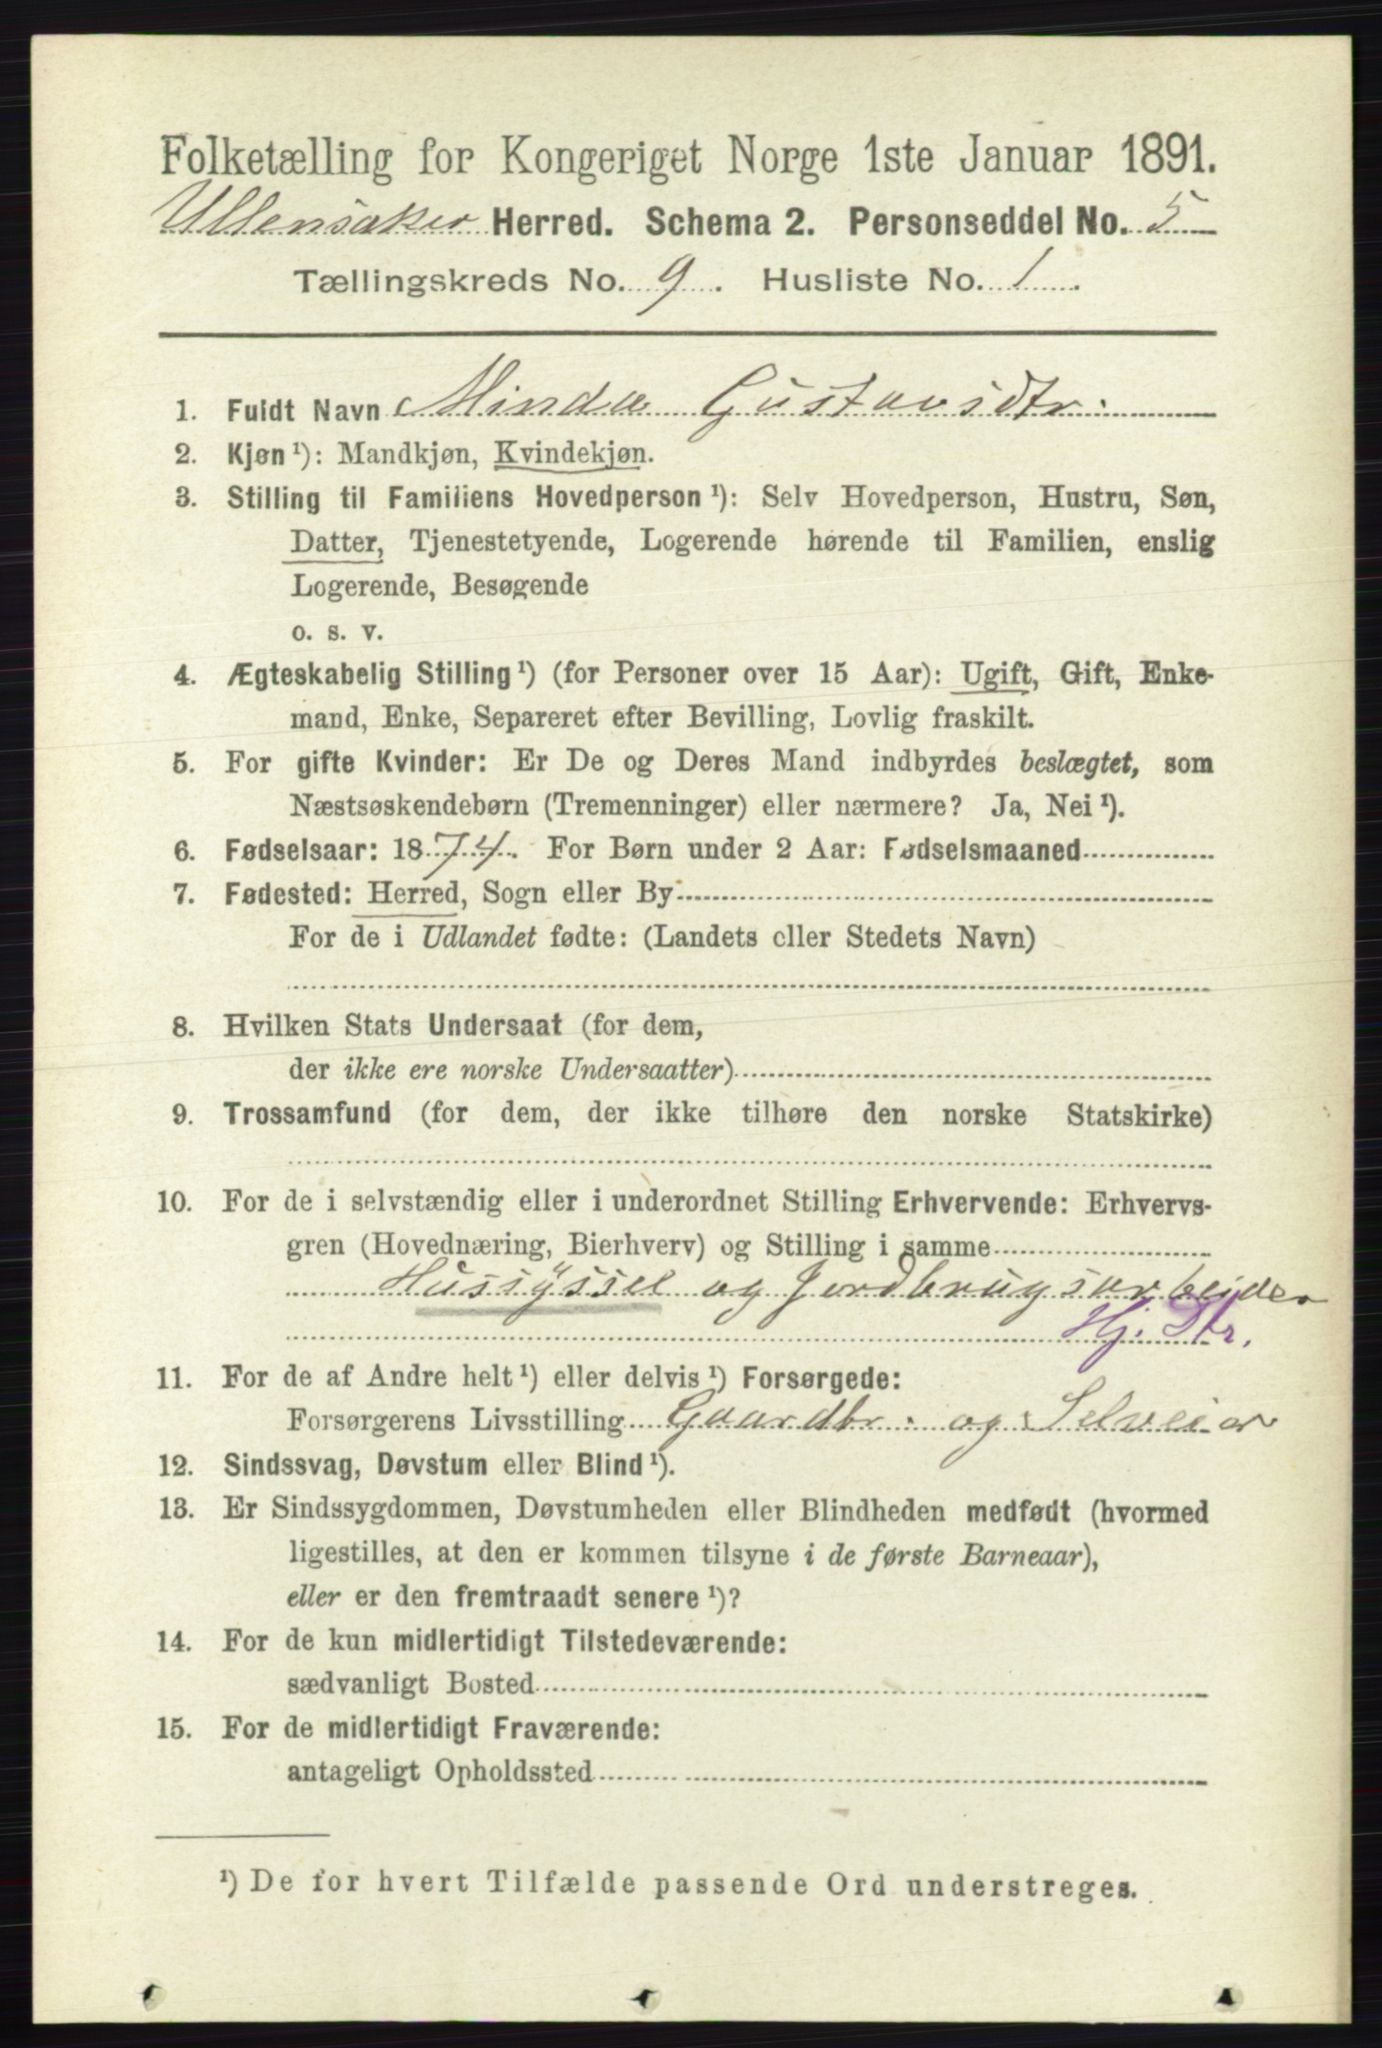 Folketælling for Kongeriget Norge 1ste Januar 1891.
Ullensaker Herred. Schema 2. Personseddel No. 5
Tællingskreds No. 9. Husliste No. 1.
1. Fuldt Navn Minda Gustavsdtr.
2. Kjøn ¹): Mandkjøn, Kvindekjøn.
3. Stilling til Familiens Hovedperson ¹): Selv Hovedperson, Hustru, Søn,
Datter, Tjenestetyende, Logerende hørende til Familien, enslig
Logerende, Besøgende
o. s. v.
4. Ægteskabelig Stilling ¹) (for Personer over 15 Aar): Ugift, Gift, Enke-
mand, Enke, Separeret efter Bevilling, Lovlig fraskilt.
5. For gifte Kvinder: Er De og Deres Mand indbyrdes beslægtet, som
Næstsøskendebørn (Tremenninger) eller nærmere? Ja, Nei ¹).
6. Fødselsaar: 1874. For Børn under 2 Aar: Fødselsmaaned
7. Fødested: Herred, Sogn eller By
For de i Udlandet fødte: (Landets eller Stedets Navn)
8. Hvilken Stats Undersaat (for dem,
der ikke ere norske Undersaatter)
9. Trossamfund (for dem, der ikke tilhøre den norske Statskirke)
10. For de i selvstændig eller i underordnet Stilling Erhvervende: Erhvervs-
gren (Hovednæring, Bierhverv) og Stilling i samme
Hussyssel og Jordbrugsarbeide
Hj. Dtr.
11. For de af Andre helt ¹) eller delvis ¹) Forsørgede:
Forsørgerens Livsstilling Gaardbr. og Selveier
12. Sindssvag, Døvstum eller Blind ¹).
13. Er Sindssygdommen, Døvstumheden eller Blindheden medfødt (hvormed
ligestilles, at den er kommen tilsyne i de første Barneaar),
eller er den fremtraadt senere ¹)?
14. For de kun midlertidigt Tilstedeværende:
sædvanligt Bosted
15. For de midlertidigt Fraværende:
antageligt Opholdssted
¹) De for hvert Tilfælde passende Ord understreges.